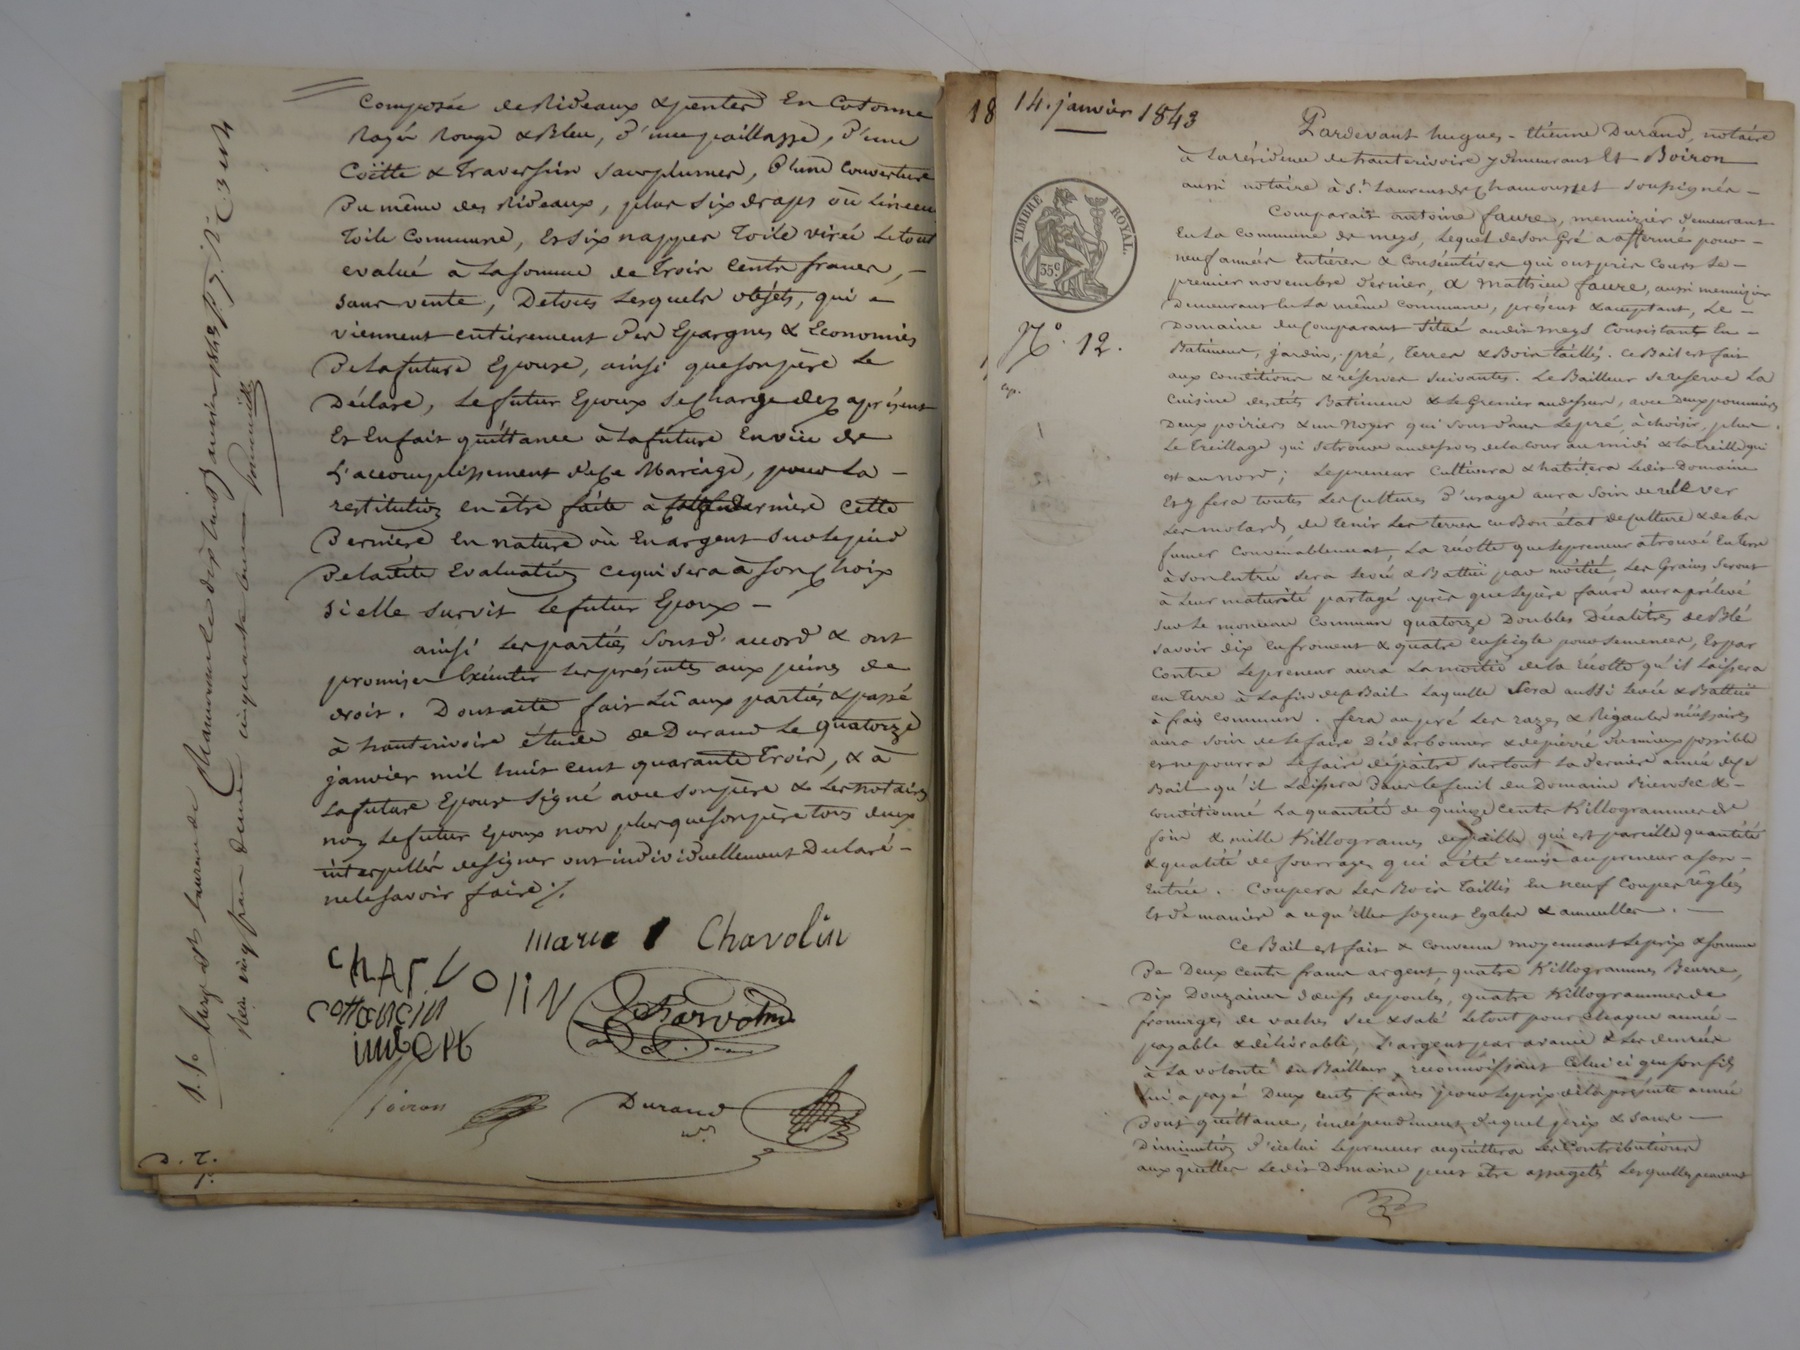 composée de Rideaux & pentes en Cotonne
Rayée Rouge & Bleu, d'une paillasse, d'une
Coëtte & Traversin sans plumes, d'une Couverture
du même des Rideaux, plus six draps où Linceu
toile Commune, et six nappes toile virée le tout
evalué à la somme de trois cents francs, –
sans vente, De tous lesquels objets, qui –
viennent entièrement des Epargnes & Economies
De la future Epouse, ainsi que son père le
Déclare, le futur Epoux se Charge dez aprésent
Et en fait quittance à la future en vüe de
L'accomplissement de ce Mariage, pour la –
restitution en être faite à cette
Derniere en nature où en argent sur le pied
De ladite Evaluation ce qui sera à son Choix
si elle survit le futur Epoux –
ainsi les parties sont d'accord & ont
promis Exécuter les présentes aux peines de
droit. Dont acte fait Lû aux parties & passé
à hauterivoire étude de Durand le quatorze
janvier mil huit cent quarante trois, & à
La future Epouse signé avec son père & les notaires
non le futur Epoux non plus que son père tous deux
interpellés de signer ont individuellement Déclaré –
ne le savoir faire ./.
marie Chavolin
CHARVOLIN
imbert
Charvolin
Boiron
Durand
nre
D. T.
14. janvier 1843
TIMBRE ROYAL.
35 c.
N.° 12.
Pardevant hugues-Etienne Durand, notaire
à la résidence de hauterivoire y demeurant Et Boiron
aussi notaire à St. Laurent de Chamousset soussignés –
Comparait antoine faure, menuizier demeurant
En la Commune de meys, lequel de son Gré a affermé pour –
neuf années Entieres & Consécutives qui ont pris Cours le –
premier novembre dernier, à matthieu faure, aussi menuizier
Demeurant En la même Commune, présent & acceptant, Le –
Domaine du Comparant situé audit meys Consistant En –
Batimens, jardin, pré, terres & Bois taillis. Ce Bail est fait
aux Conditions & réserves suivantes. Le Bailleur se reserve La
Cuisine desdits Batimens & le Grenier au dessus, avec Deux pommiers
Deux poiriers & un Noyer qui sont dans Le pré, à choisir, plus
Le treillage qui se trouve au dessous de la cour au midi & la treille qui
est au nord; Le preneur Cultivera & habitera Ledit Domaine
Et y fera toutes Les Cultures d'usage aura soin de relever
Les motards de tenir Les terres en Bon état de Culture & de les
fumer Convenablement, La récolte que le preneur a trouvé En terre
à son Entrée sera levée & Battüe par moitié, Les Grains seront
à Leur maturité partagé après que le père faure aura prélevé
sur Le monceau Commun quatorze Doubles Décalitres de Blé
savoir dix En froment & quatre en seigle pour semences, Et par
Contre Le preneur aura La moitié de la récolte qu'il Laissera
en terre à La fin de ce Bail Laquelle sera aussi levée & Battüe
à frais commun. fera au pré Les razes & Rigauts nécéssaires
aura soin de le faire Dédarbonner & depierré du mieux possible
et ne pourra Le faire dépaitre surtout La derniere année de ce
Bail qu'il Laissera dans le fenil du Domaine Bien sec & –
Conditionné La quantité de quinze cents Killogrammes de
foin & mille Killogrames de paille qui est pareille quantité
& qualité de fourrages qui a été remise au preneur à son –
Entrée. Coupera Les Bois Taillis En neuf Coupes réglés
Et de maniere à ce qu'elles soyent Egales & annuelles. –
Ce Bail est fait & Convenu moyennant Le prix & somme
De Deux cents francs argent, quatre Killogrammes Beurre,
Dix Douzaines d'œufs de poules, quatre Killogrammes de
fromages de vaches sec & salé Le tout pour chaque année –
payable & délivrable, L'argent par avance & Les denrées
à La volonté du Bailleur, reconnoissant Celui ci que son fils
lui a payé Deux cents francs pour le prix de la présente année
Dont quittance, indépendament duquel prix & sans –
Diminution d'icelui Le preneur acquittera Les Contributions
aux quelles Ledit Domaine peut etre assugeti Lesquelles peuvent